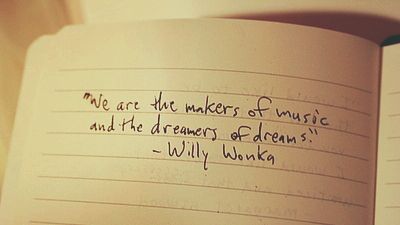 "We are the makers of music
and the dreamers of dreams."
- Willy Wonka